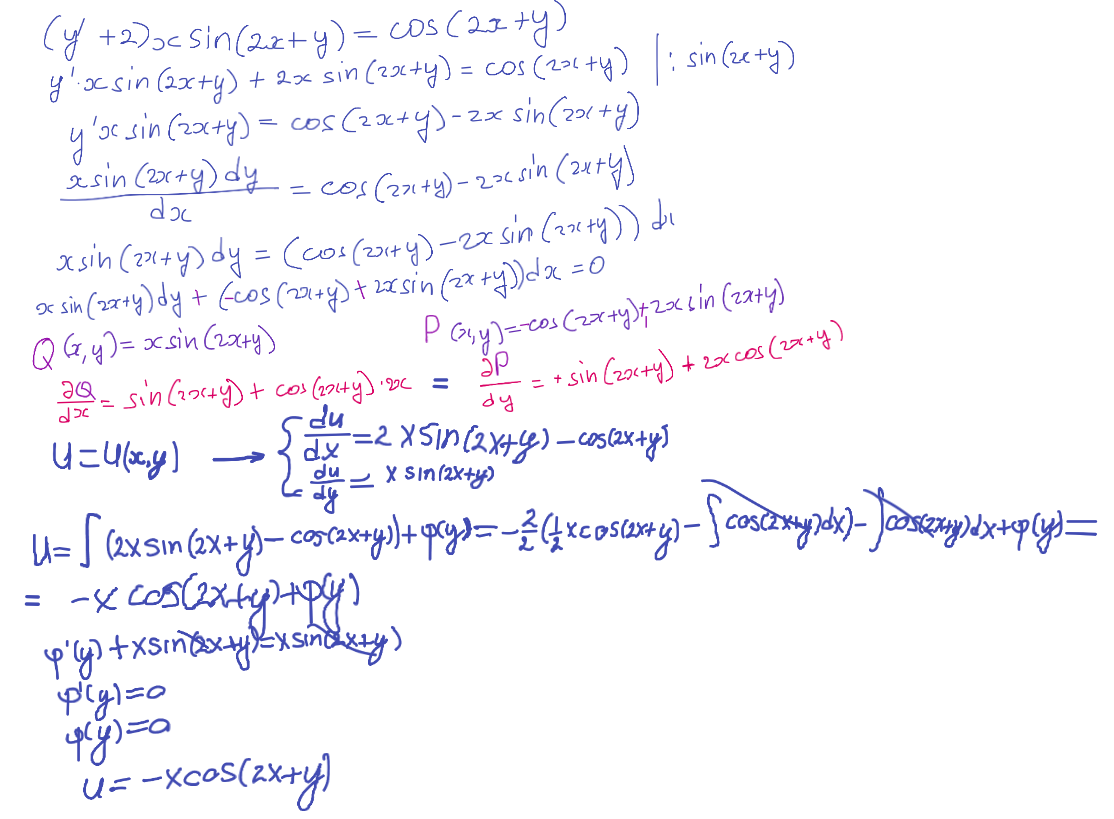 (y' +2)x sin(2x+y) = cos(2x+y)
y'·x sin(2x+y) + 2x sin(2x+y) = cos(2x+y) |: sin(2x+y)
y'x sin(2x+y) = cos(2x+y) - 2x sin(2x+y)
x sin(2x+y) dy / dx = cos(2x+y) - 2x sin(2x+y)
x sin(2x+y) dy = (cos(2x+y) - 2x sin(2x+y)) dx
x sin(2x+y) dy + (-cos(2x+y) + 2x sin(2x+y)) dx = 0
Q(x,y) = x sin(2x+y) P(x,y) = -cos(2x+y) + 2x sin(2x+y)
∂Q/dx = sin(2x+y) + cos(2x+y)·2x = ∂P/dy = + sin(2x+y) + 2x cos(2x+y)
U = U(x,y) → { du/dx = 2x sin(2x+y) - cos(2x+y)
du/dy = x sin(2x+y)
U = ∫(2x sin(2x+y) - cos(2x+y)) + φ(y) = -2/2 (1/2 x cos(2x+y) - ∫cos(2x+y)dx) - ∫cos(2x+y)dx + φ(y) =
= -x cos(2x+y) + φ(y)
φ'(y) + x sin(2x+y) = x sin(2x+y)
φ'(y) = 0
φ(y) = 0
u = -x cos(2x+y)